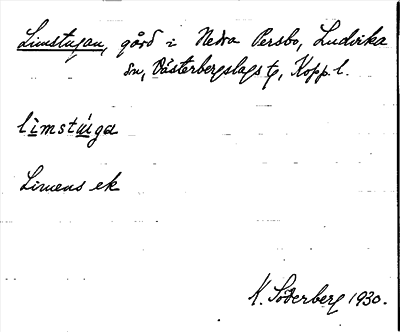 Limstugan, gård i Nedra Persbo, Ludvika
sn, Västerbergslags tg, Kopp. l.
lìmstúga
Limens ek
K. Söderberg 1930.